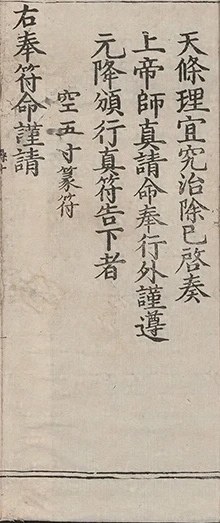 天條理宜究治除已啓奏
上帝師真請命奉行外謹遵
元降頒行真符告下者
空五寸篆符
右奉符命謹請